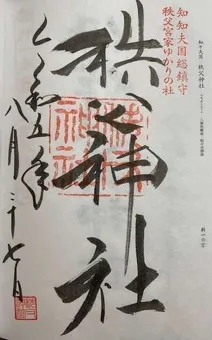 知知夫国総鎮守
秩父宮家ゆかりの社
知々夫国 秩父神社
秩父神社
令和五年
八月二十七日
秩父神社